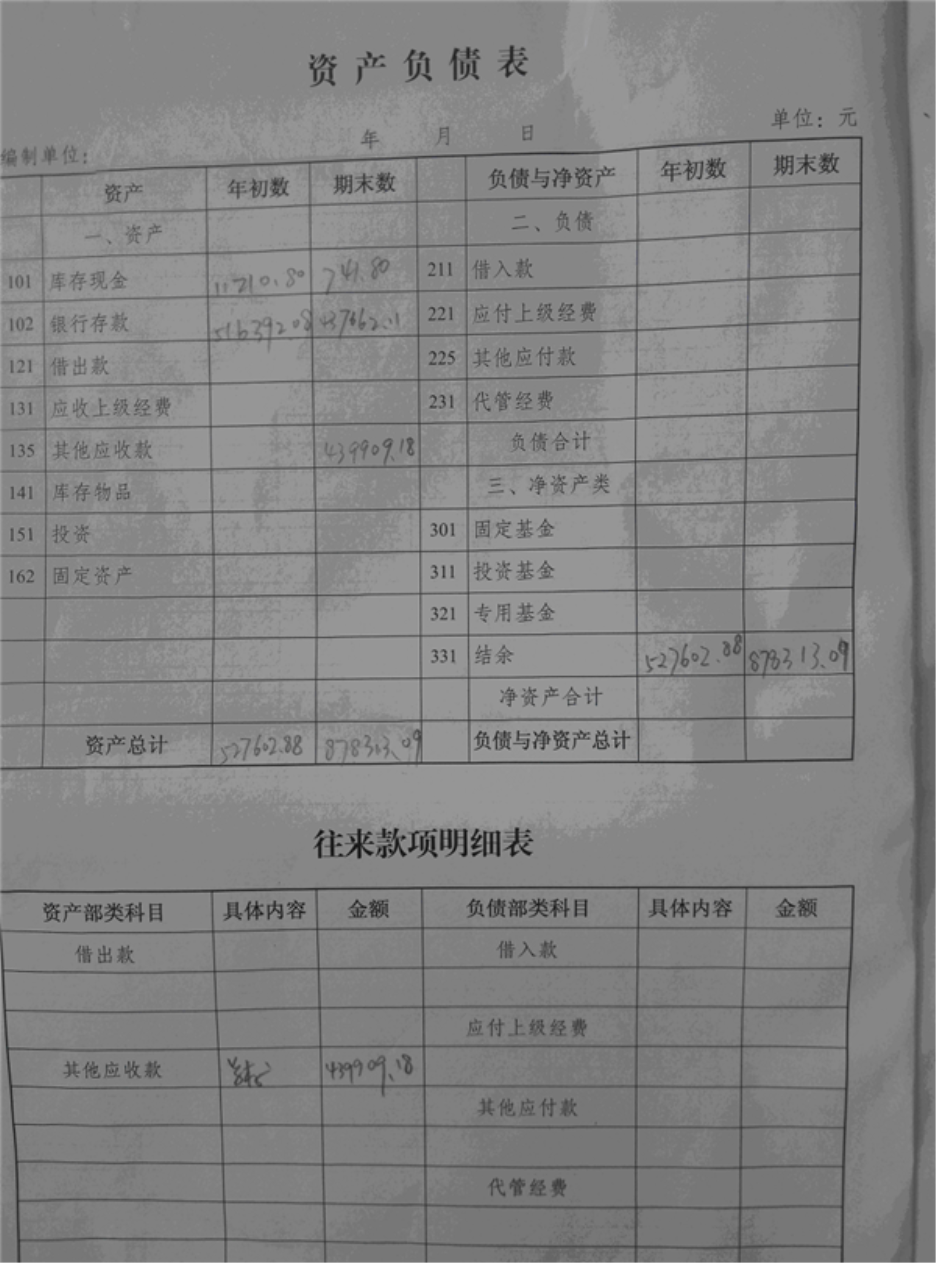 资产负债表
编制单位： 年 月 日 单位：元
资产 年初数 期末数 负债与净资产 年初数 期末数
一、资产 二、负债
101 库存现金 11210.80 741.80 211 借入款
102 银行存款 516392.08 221 应付上级经费
121 借出款 225 其他应付款
131 应收上级经费 231 代管经费
135 其他应收款 439909.18 负债合计
141 库存物品 三、净资产类
151 投资 301 固定基金
162 固定资产 311 投资基金
321 专用基金
331 结余 527602.88 878313.09
净资产合计
资产总计 527602.88 878313.09 负债与净资产总计
往来款项明细表
资产部类科目 具体内容 金额 负债部类科目 具体内容 金额
借出款 借入款
应付上级经费
其他应收款 439909.18
其他应付款
代管经费